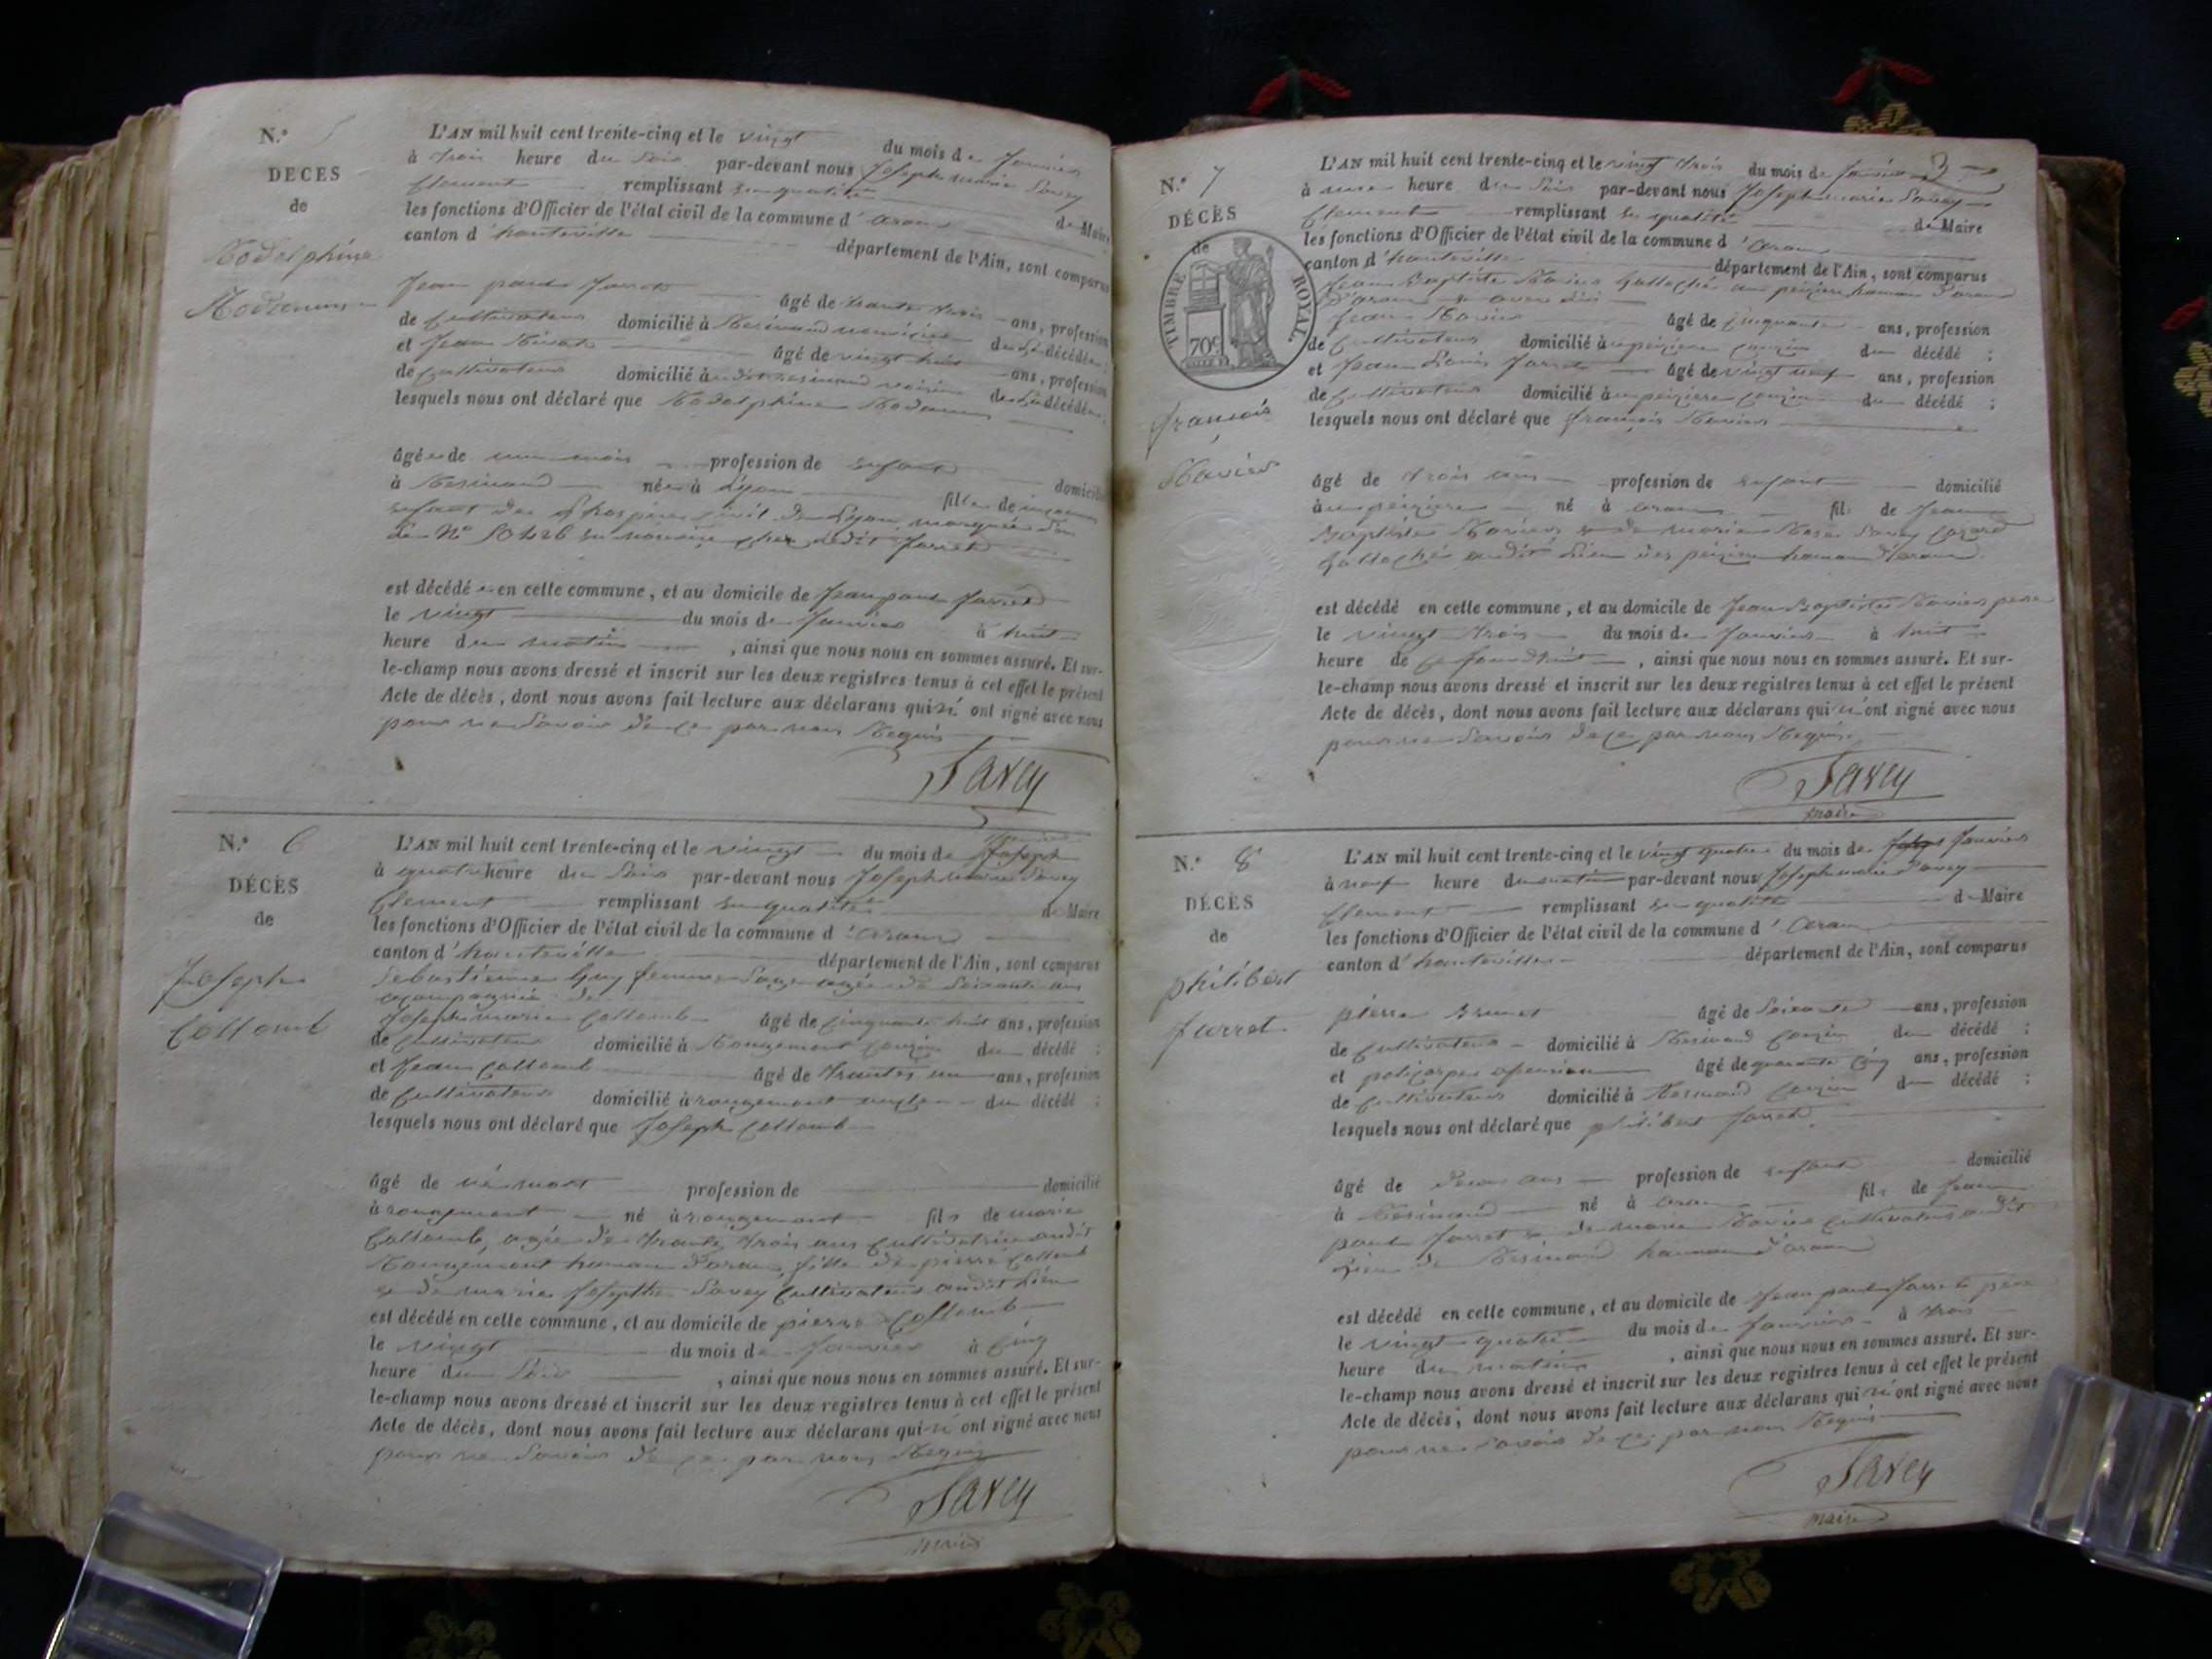 N.º 5
DECES
de
Rodolphine
L'AN mil huit cent trente-cinq et le vingt du mois de Janvier
à trois heure du soir par-devant nous Joseph marie Savey
Clement remplissant en qualité de Maire
les fonctions d'Officier de l'état civil de la commune d' aranc
canton d' hauteville département de l'Ain, sont comparus
Jean paul Jarret âgé de trante trois ans, profession
de Cultivateur domicilié à Resinand nouricier de la décédée
et Jean âgé de vingt huit ans, profession
de Cultivateur domicilié audit resinand voisin de la décédée
lesquels nous ont déclaré que Rodolphine
âgée de un mois profession de enfant domicilié
à Resinand née à Lyon fille de inconnu
enfant de l'hospice civil de Lyon, marquée
N° 50426 en nourice chez ledit Jarret
est décédée en cette commune, et au domicile de Jean paul Jarret
le vingt du mois de Janvier à huit
heure du matin, ainsi que nous nous en sommes assuré. Et sur-
le-champ nous avons dressé et inscrit sur les deux registres tenus à cet effet le présent
Acte de décès, dont nous avons fait lecture aux déclarans qui n' ont signé avec nous
pour ne savoir de ce par nous Requis
Savey
N.º 6
DÉCÈS
de
Joseph
Collomb
L'AN mil huit cent trente-cinq et le vingt du mois de Joseph
à quatre heure du soir par-devant nous Joseph marie Savey
Clement remplissant en qualité de Maire
les fonctions d'Officier de l'état civil de la commune d' aranc
canton d' hauteville département de l'Ain, sont comparus
Sebastienne Guy femme Sage agée de Soixante ans
acompagnée de
Joseph marie Collomb âgé de Cinquante huit ans, profession
de Cultivateur domicilié à Rougemont Couzin du décédé ;
et Jean Collomb âgé de trantes un ans, profession
de Cultivateur domicilié à rougemont oncle du décédé ;
lesquels nous ont déclaré que Joseph Collomb
âgé de né mort profession de domicilié
à rougemont né à rougemont fils de marie
Collomb, agée de trante trois ans Cultivatrice audit
Rougemont hameau d'aranc, fille de pierre Collomb
et de marie Josephte Savey Cultivateurs audit Lieu
est décédé en cette commune, et au domicile de pierre Collomb
le vingt du mois de Janvier à Cinq
heure du Soir, ainsi que nous nous en sommes assuré. Et sur-
le-champ nous avons dressé et inscrit sur les deux registres tenus à cet effet le présent
Acte de décès, dont nous avons fait lecture aux déclarans qui n' ont signé avec nous
pour ne Savoir de ce par nous Requis
Savey
maire
3
N.º 7
DÉCÈS
de
TIMBRE ROYAL
70 c
francois
Ravier
L'AN mil huit cent trente-cinq et le vingt trois du mois de Janvier
à une heure du soir par-devant nous Joseph marie Savey
Clement remplissant en qualité de Maire
les fonctions d'Officier de l'état civil de la commune d' aranc
canton d' hauteville département de l'Ain, sont comparus
Jean Baptiste Ravier
Jean Ravier âgé de Cinquante ans, profession
de Cultivateur domicilié Couzin du décédé ;
et Jean Louis Jarret âgé de vingt neuf ans, profession
de Cultivateur domicilié Couzin du décédé ;
lesquels nous ont déclaré que françois Ravier
âgé de trois ans profession de enfant domicilié
né à aranc fils de Jean
Baptiste Ravier et de marie Rose Savey
audit Lieu hameau d'aranc
est décédé en cette commune, et au domicile de Jean Baptiste Ravier pere
le vingt trois du mois de Janvier à huit
heure de ce Jourdhui, ainsi que nous nous en sommes assuré. Et sur-
le-champ nous avons dressé et inscrit sur les deux registres tenus à cet effet le présent
Acte de décès, dont nous avons fait lecture aux déclarans qui n' ont signé avec nous
pour ne Savoir de ce par nous Requis
Savey
maire
N.º 8
DÉCÈS
de
philibert
Jarret
L'AN mil huit cent trente-cinq et le vingt quatre du mois de Janvier
à neuf heure du matin par-devant nous Joseph marie Savey
Clement remplissant en qualité de Maire
les fonctions d'Officier de l'état civil de la commune d' aranc
canton d' hauteville département de l'Ain, sont comparus
pierre Brunet âgé de Soixante ans, profession
de Cultivateur domicilié à Resinand Couzin du décédé ;
et policarpe âgé de quarante Cinq ans, profession
de Cultivateur domicilié à Resinand Couzin du décédé ;
lesquels nous ont déclaré que philibert Jarret
âgé de deux ans profession de enfant domicilié
à Resinand né à aranc fils de Jean
paul Jarret et de marie Ravier Cultivateur audit
Lieu de Resinand hameau d'aranc
est décédé en cette commune, et au domicile de Jean paul Jarret pere
le vingt quatre du mois de Janvier à trois
heure du matin, ainsi que nous nous en sommes assuré. Et sur-
le-champ nous avons dressé et inscrit sur les deux registres tenus à cet effet le présent
Acte de décès, dont nous avons fait lecture aux déclarans qui n' ont signé avec nous
pour ne Savoir de ce par nous Requis
Savey
maire